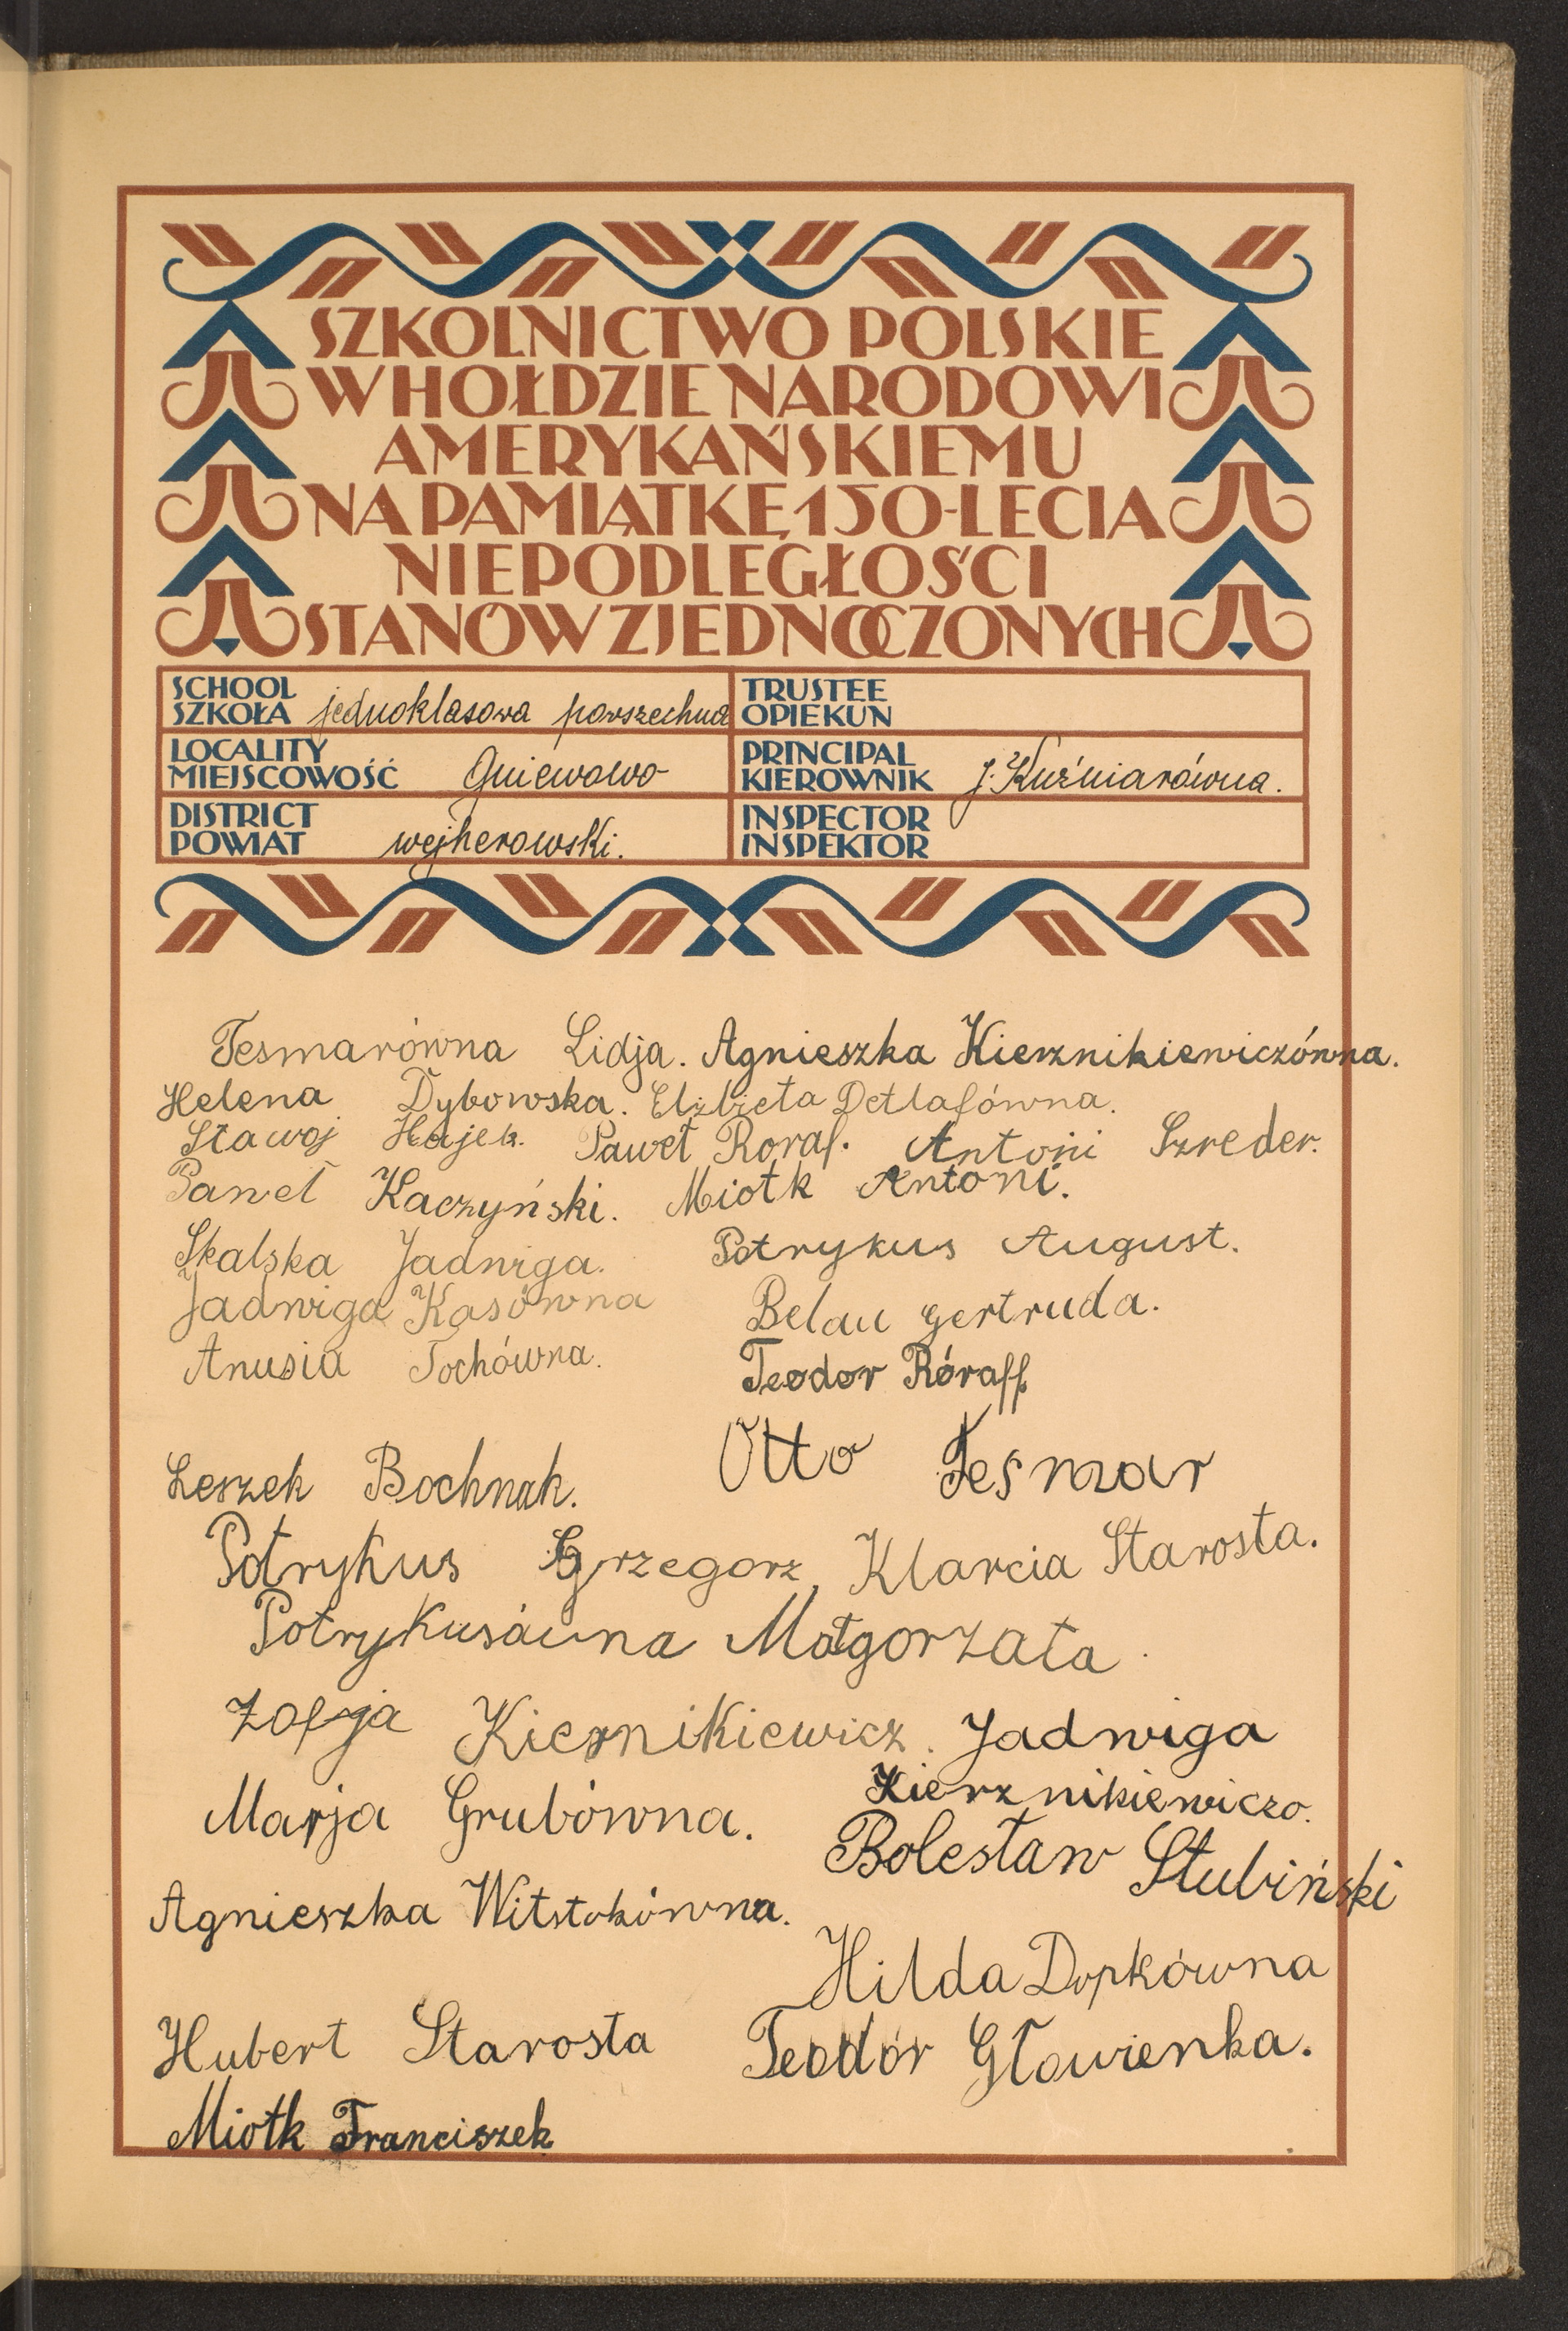 SZKOLNICTWO POLSKIE
W HOŁDZIE NARODOWI
AMERYKAŃSKIEMU
NA PAMIĄTKĘ 150-LECIA
NIEPODLEGŁOŚCI
STANÓW ZJEDNOCZONYCH
SCHOOL
SZKOŁA jednoklasowa powszechna
TRUSTEE
OPIEKUN
LOCALITY
MIEJSCOWOŚĆ Gniewowo
PRINCIPAL
KIEROWNIK J. Kuźniarówna.
DISTRICT
POWIAT wejherowski.
INSPECTOR
INSPEKTOR
Tesmarówna Lidja. Agnieszka Kierznikiewiczówna.
Helena Dybowska. Elżbieta Detlafówna.
Sławoj Hajek. Paweł Roraf. Antoni Szreder.
Paweł Kaczyński. Miotk Antoni.
Skalska Jadwiga. Potrykus August.
Jadwiga Kasówna Belau Gertruda.
Anusia Tochówna. Teodor Róraff
Leszek Bochnak. Otto Tesmar
Potrykus Grzegorz, Klarcia Starosta.
Potrykusówna Małgorzata.
Zofja Kiernikiewicz. Jadwiga
Kierznikiewiczo.
Marja Grubówna.
Bolesław Stubiński
Agnieszka Witstokówna.
Hilda Dopkówna
Hubert Starosta Teodór Głowienka.
Miotk Franciszek